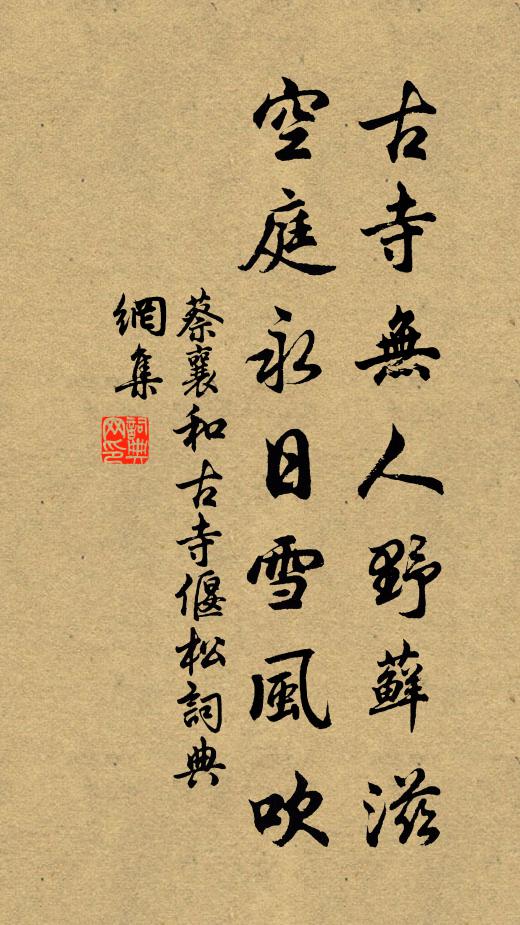 古寺無人野蘚滋
空庭永日雪風吹
蔡襄和古寺偃松詞典
網集
詞典
网印